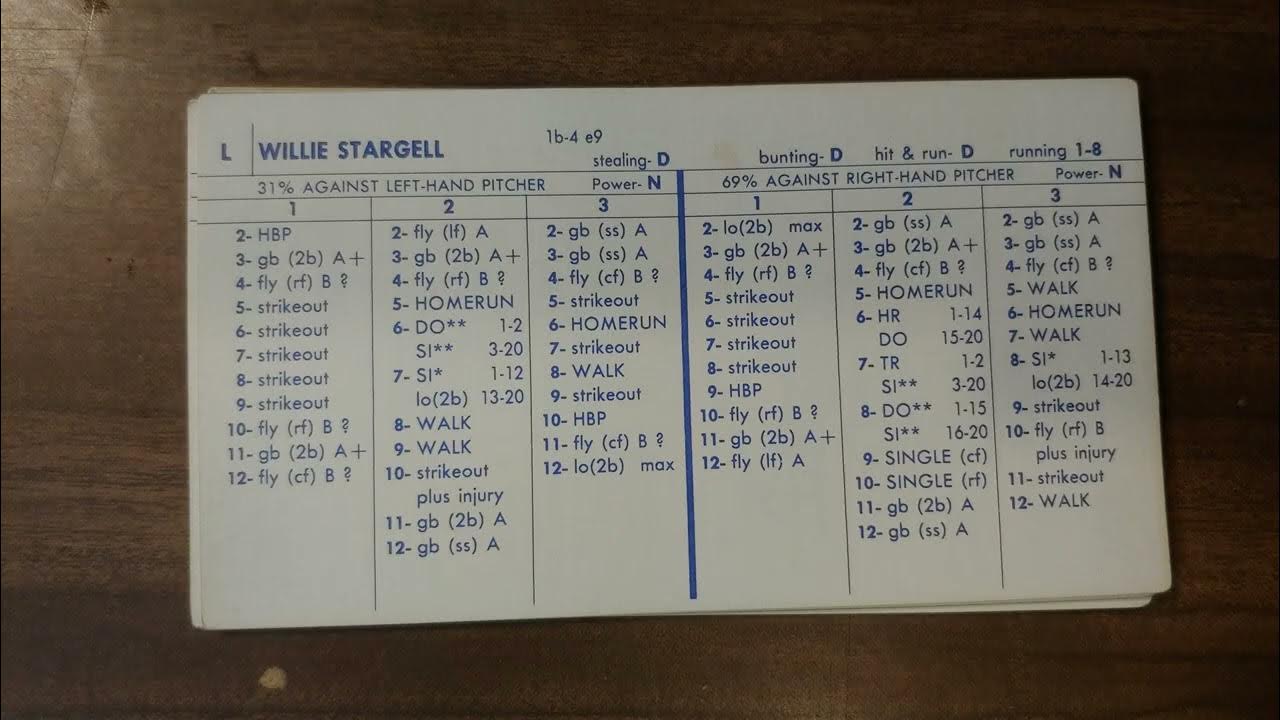 L WILLIE STARGELL 1b-4 e9
stealing- D bunting- D hit & run- D running 1-8
31% AGAINST LEFT-HAND PITCHER Power- N
1 2 3
2- HBP
3- gb (2b) A+
4- fly (rf) B ?
5- strikeout
6- strikeout
7- strikeout
8- strikeout
9- strikeout
10- fly (rf) B ?
11- gb (2b) A+
12- fly (cf) B ?
2- fly (lf) A
3- gb (2b) A+
4- fly (rf) B ?
5- HOMERUN
6- DO** 1-2
SI** 3-20
7- SI* 1-12
lo(2b) 13-20
8- WALK
9- WALK
10- strikeout
plus injury
11- gb (2b) A
12- gb (ss) A
2- gb (ss) A
3- gb (ss) A
4- fly (cf) B ?
5- strikeout
6- HOMERUN
7- strikeout
8- WALK
9- strikeout
10- HBP
11- fly (cf) B ?
12- lo(2b) max
69% AGAINST RIGHT-HAND PITCHER Power- N
1 2 3
2- lo(2b) max
3- gb (2b) A+
4- fly (rf) B ?
5- strikeout
6- strikeout
7- strikeout
8- strikeout
9- HBP
10- fly (rf) B ?
11- gb (2b) A+
12- fly (lf) A
2- gb (ss) A
3- gb (2b) A+
4- fly (cf) B ?
5- HOMERUN
6- HR 1-14
DO 15-20
7- TR 1-2
SI** 3-20
8- DO** 1-15
SI** 16-20
9- SINGLE (cf)
10- SINGLE (rf)
11- gb (2b) A
12- gb (ss) A
2- gb (ss) A
3- gb (ss) A
4- fly (cf) B ?
5- WALK
6- HOMERUN
7- WALK
8- SI* 1-13
lo(2b) 14-20
9- strikeout
10- fly (rf) B
plus injury
11- strikeout
12- WALK